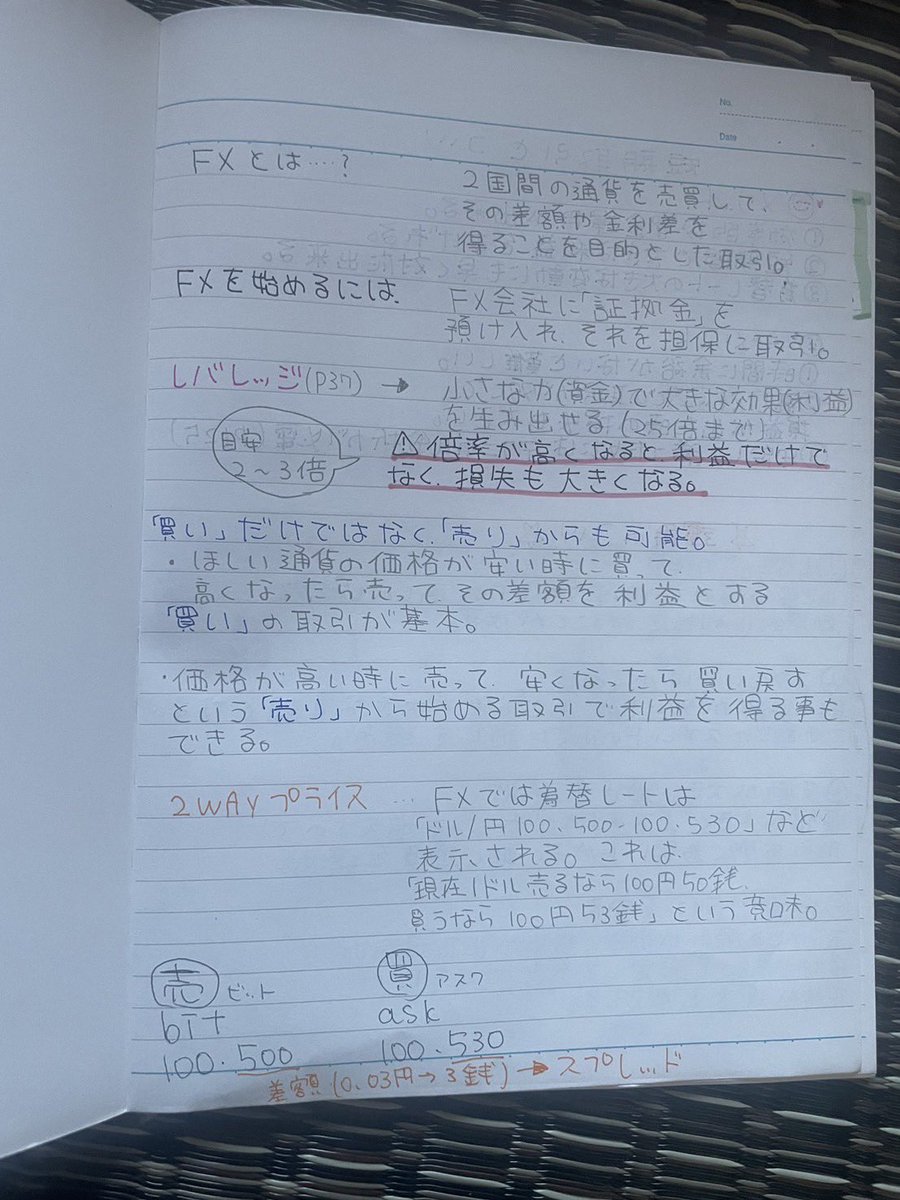 No.
Date
FXとは……?
2国間の通貨を売買して、
その差額や金利差を
得ることを目的とした取引。
FXを始めるには、
FX会社に「証拠金」を
預け入れ、それを担保に取引。
レバレッジ(P37) → 小さな力(資金)で大きな効果(利益)
を生み出せる(25倍まで)
目安
2〜3倍
⚠倍率が高くなると、利益だけで
なく、損失も大きくなる。
「買い」だけではなく、「売り」からも可能。
・ほしい通貨の価格が安い時に買って、
高くなったら売って、その差額を利益とする
「買い」の取引が基本。
・価格が高い時に売って、安くなったら買い戻す
という「売り」から始める取引で利益を得る事も
できる。
2WAYプライス … FXでは為替レートは
「ドル/円100.500-100.530」など
表示される。これは、
「現在1ドル売るなら100円50銭、
買うなら100円53銭」という意味。
売 ビット 買 アスク
bit ask
100.500 100.530
差額(0.03円→3銭)→スプレッド